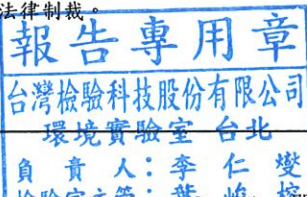 法律制裁。
報告專用章
台灣檢驗科技股份有限公司
環境實驗室 台北
負責人：李仁燮